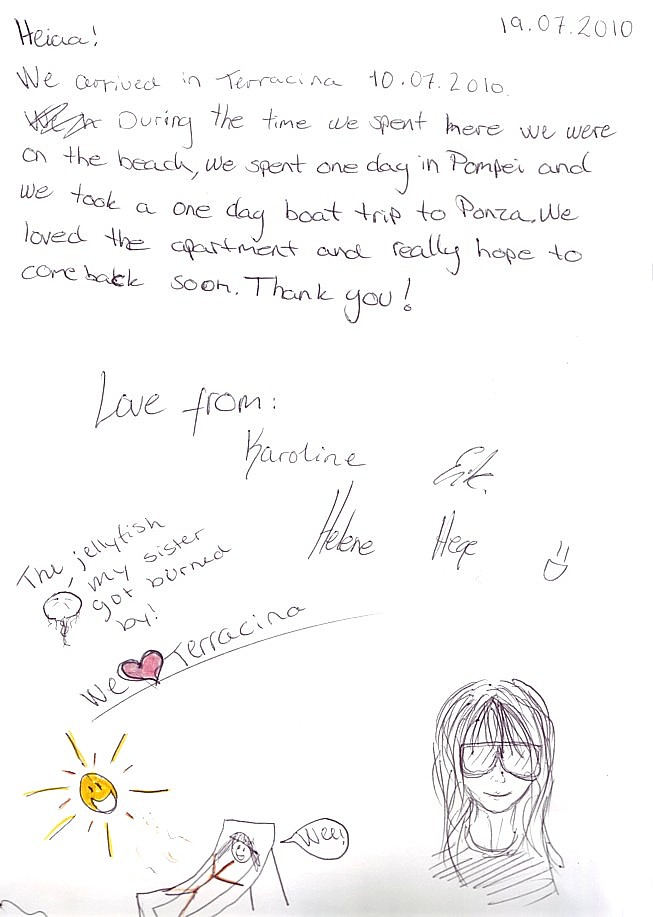 19.07.2010
Heiaa!
We arrived in Terracina 10.07.2010.
During the time we spent here we were
on the beach, we spent one day in Pompei and
we took a one day boat trip to Ponza. We
loved the apartment and really hope to
come back soon. Thank you!
Love from:
Karoline
Erik.
Helene Hege
The jellyfish
my sister
got burned
by!
We Terracina
Wee!